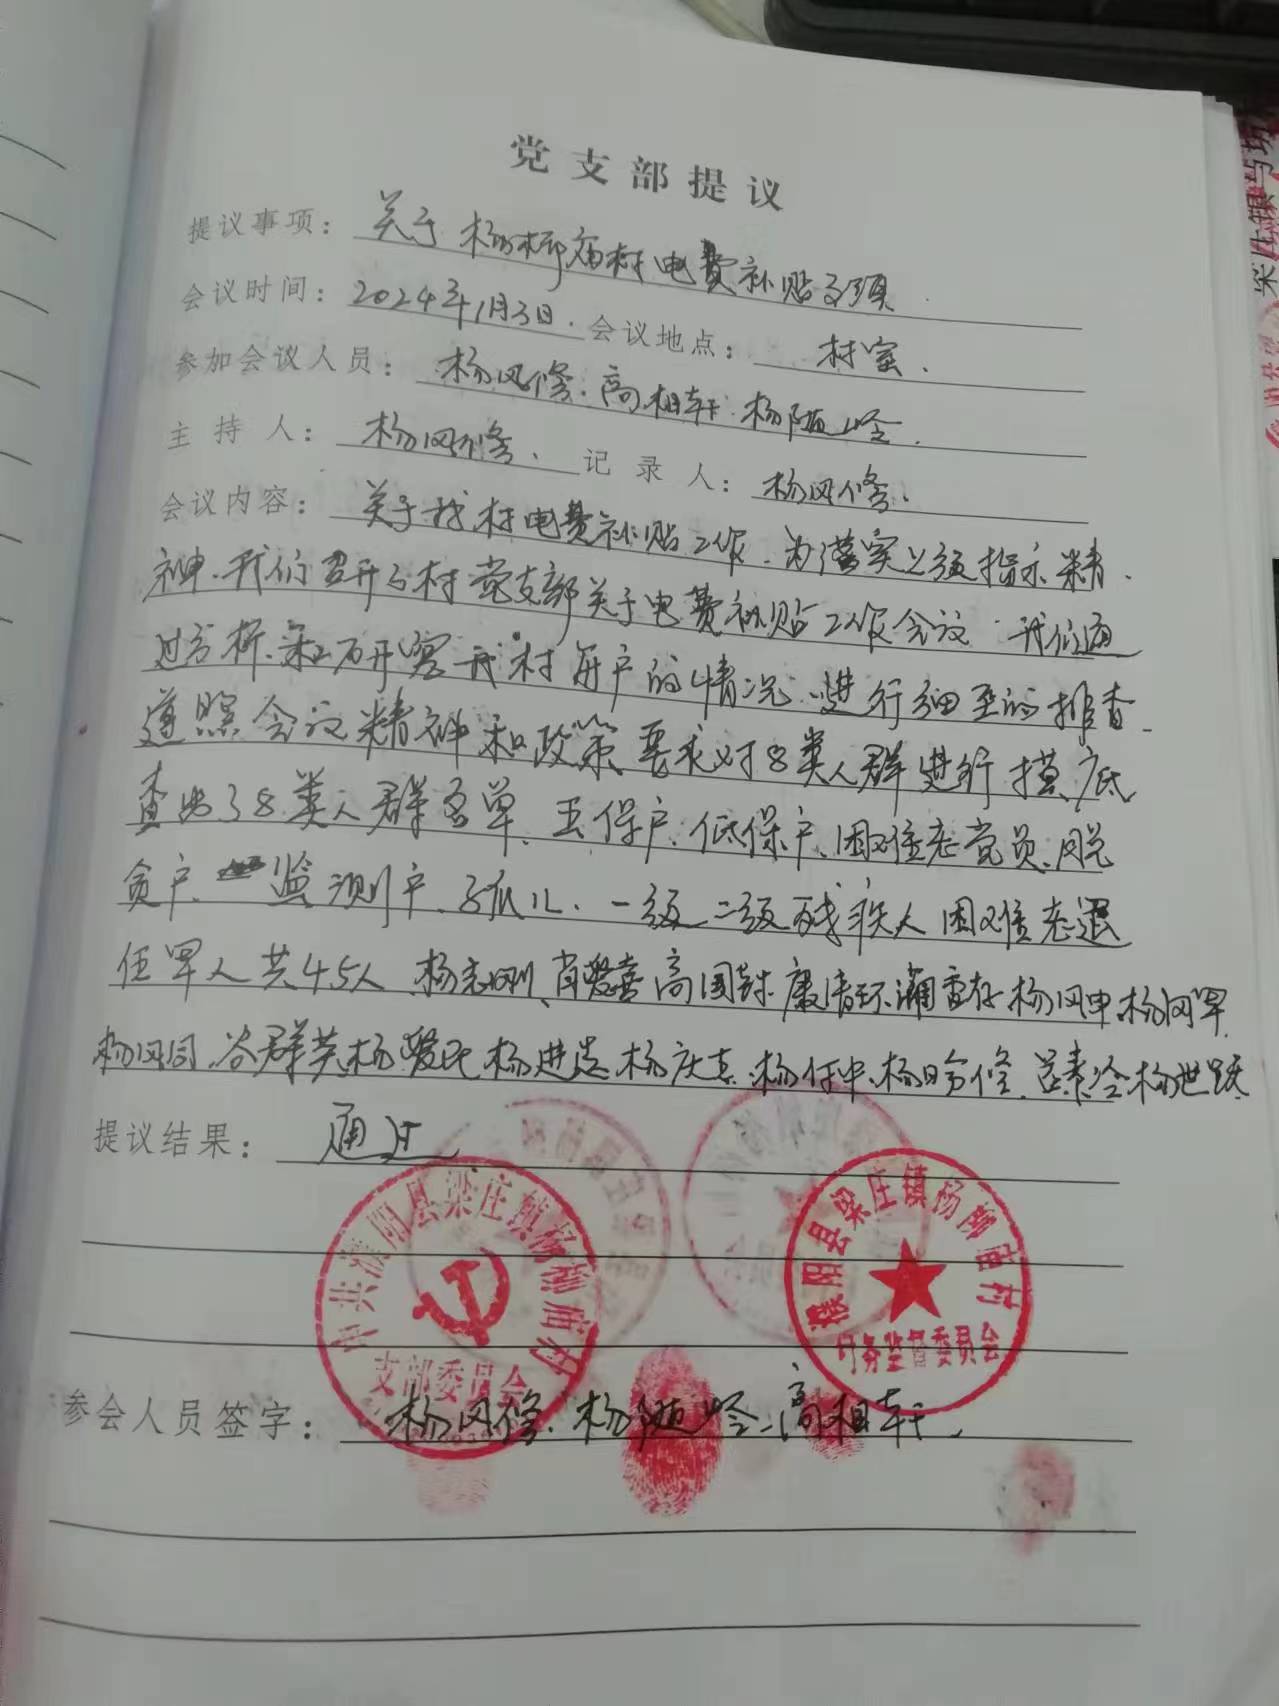 党支部提议
提议事项：关于杨柳庙村电费补贴事项
会议时间：2024年1月3日．会议地点：村室．
参加会议人员：杨风修．高相轩．杨随岭．
主持人：杨风修．记录人：杨风修．
会议内容：关于我村电费补贴工作．为落实上级指示精．
神．我们召开了村党支部关于电费补贴工作会议．我们通
过分析．和研究我村每户的情况．进行细至的排查．
遵照会议精神和政策要求对8类人群进行摸底
查出了8类人群名单、五保户、低保户、困难老党员、脱
贫户、监测户、孤儿、一级二级残疾人困难老退
伍军人共45人．杨志刚、肖爱喜高国 康清环 香存杨风申．杨风军．
杨风同．谷群英杨爱民杨进 杨庆 ．杨付中．杨 修． 素冷杨世跃
提议结果：通过
中共濮阳县梁庄镇杨柳庙村
支部委员会
濮阳县梁庄镇杨柳庙村
村务监督委员会
参会人员签字：杨风修．杨随岭．高相轩．
梁庄镇